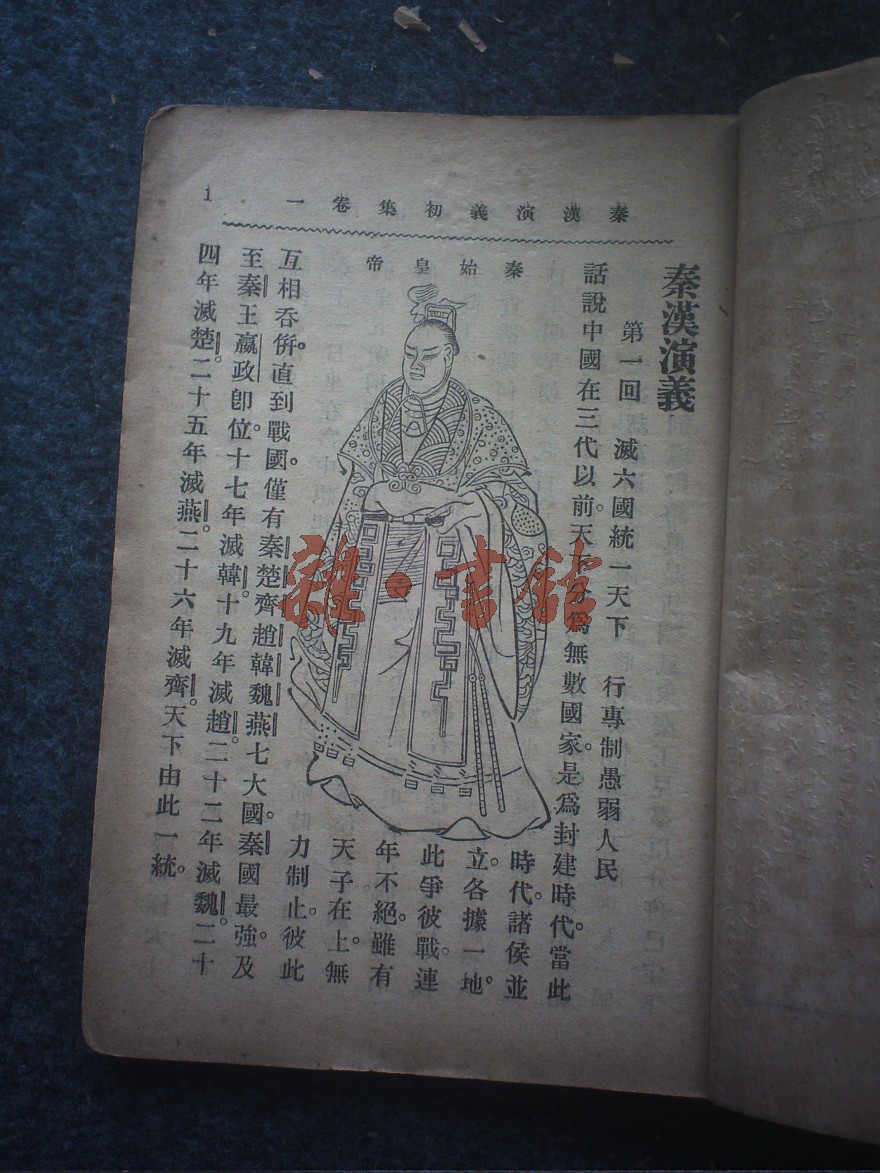 秦漢演義初集卷一
1
秦漢演義
第一回 滅六國統一天下 行專制愚弱人民
話說中國在三代以前。天下分爲無數國家。是爲封建時代。當此
時代。諸侯並
立。各據一地。
此爭彼戰。連
年不絕。雖有
天子在上。無
力制止。彼此
秦始皇帝
互相吞併。直到戰國。僅有秦楚齊趙韓魏燕七大國。秦國最強。及
至秦王嬴政卽位。十七年滅韓。十九年滅趙。二十二年滅魏。二十
四年滅楚。二十五年滅燕。二十六年滅齊。天下由此一統。
雜·書館